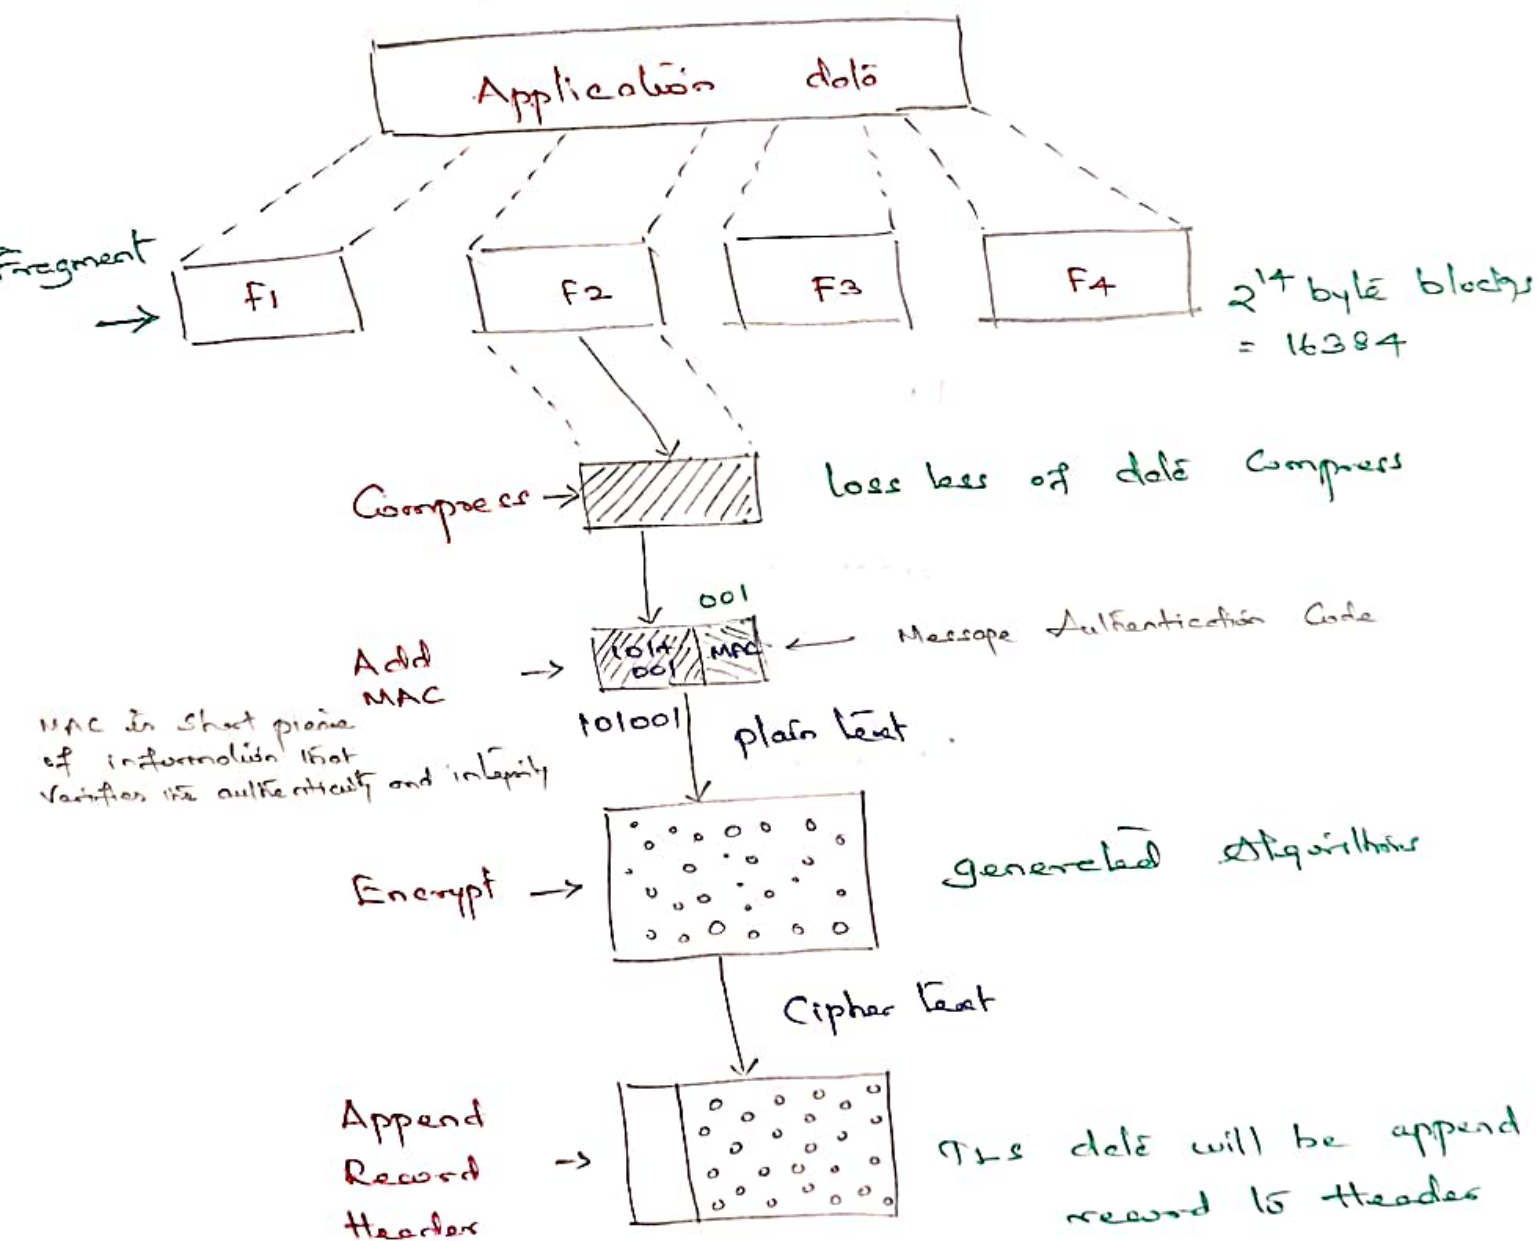 Application data
Fragment
F1 F2 F3 F4
2^14 byte blocks
= 16384
Compress → loss less of data Compress
001
Add
MAC → 101 001 MAC ← Message Authentication Code
101001
plain text
MAC is short piece
of information that
verifies the authenticity and integrity
Encrypt → generated Algorithms
Cipher text
Append
Record →
Header
data will be append
record to Header